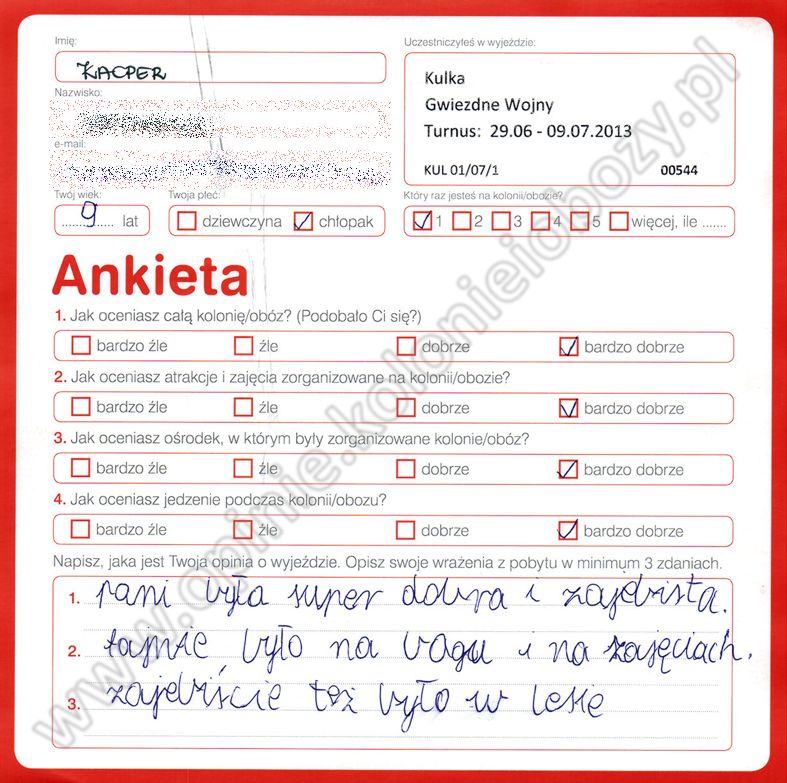 Imię:
KACPER
Nazwisko:
e-mail:
Twój wiek:
9 lat
Twoja płeć:
dziewczyna chłopak
Uczestniczyłeś w wyjeździe:
Kulka
Gwiezdne Wojny
Turnus: 29.06 - 09.07.2013
KUL 01/07/1 00544
Który raz jesteś na kolonii/obozie?
1 2 3 4 5 więcej, ile .......
Ankieta
1. Jak oceniasz całą kolonię/obóz? (Podobało Ci się?)
bardzo źle źle dobrze bardzo dobrze
2. Jak oceniasz atrakcje i zajęcia zorganizowane na kolonii/obozie?
bardzo źle źle dobrze bardzo dobrze
3. Jak oceniasz ośrodek, w którym były zorganizowane kolonie/obóz?
bardzo źle źle dobrze bardzo dobrze
4. Jak oceniasz jedzenie podczas kolonii/obozu?
bardzo źle źle dobrze bardzo dobrze
Napisz, jaka jest Twoja opinia o wyjeździe. Opisz swoje wrażenia z pobytu w minimum 3 zdaniach.
1. pani była super dobra i zajebista.
2. fajnie było na vagu i na zajęciach.
3. zajebiście też było w lesie
www.opinie.kolonieiobozy.pl